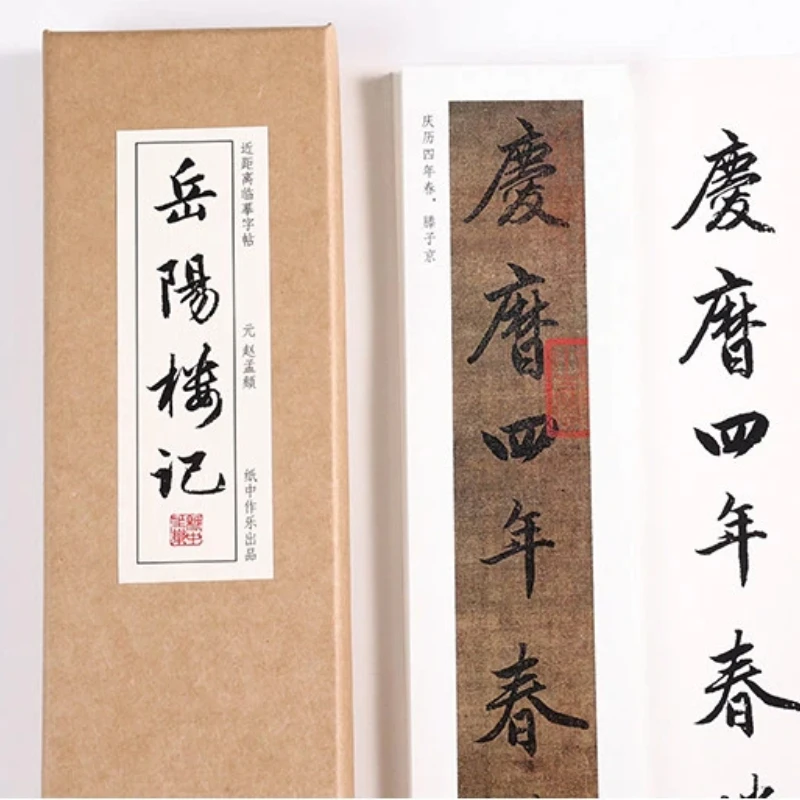 岳陽楼记
近距离临摹字帖
元 赵孟頫
纸中作乐出品
庆历四年春，滕子京
慶曆四年春
慶曆四年春